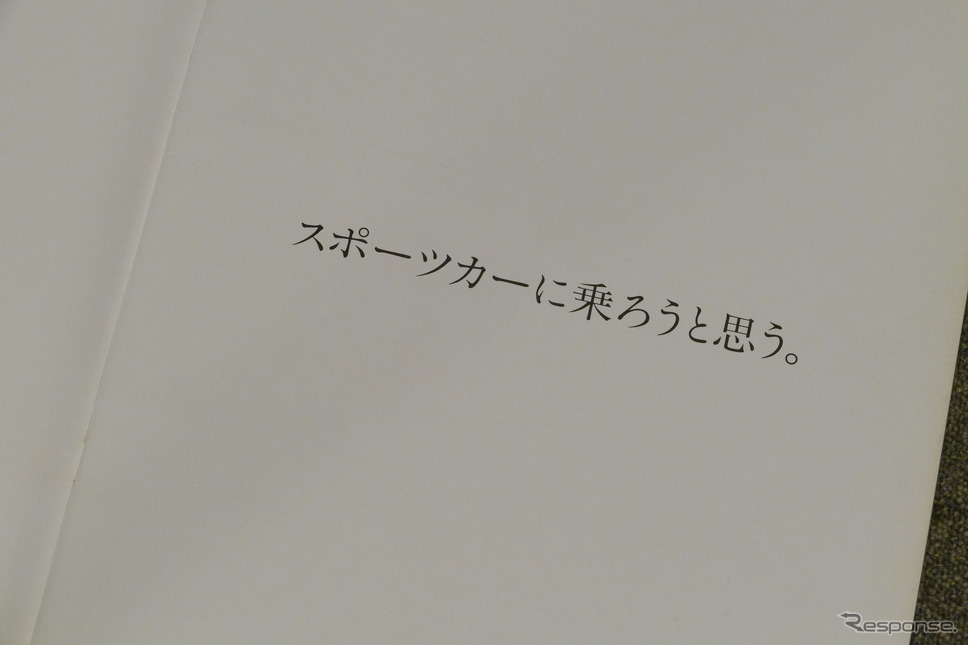 スポーツカーに乗ろうと思う。
Response.